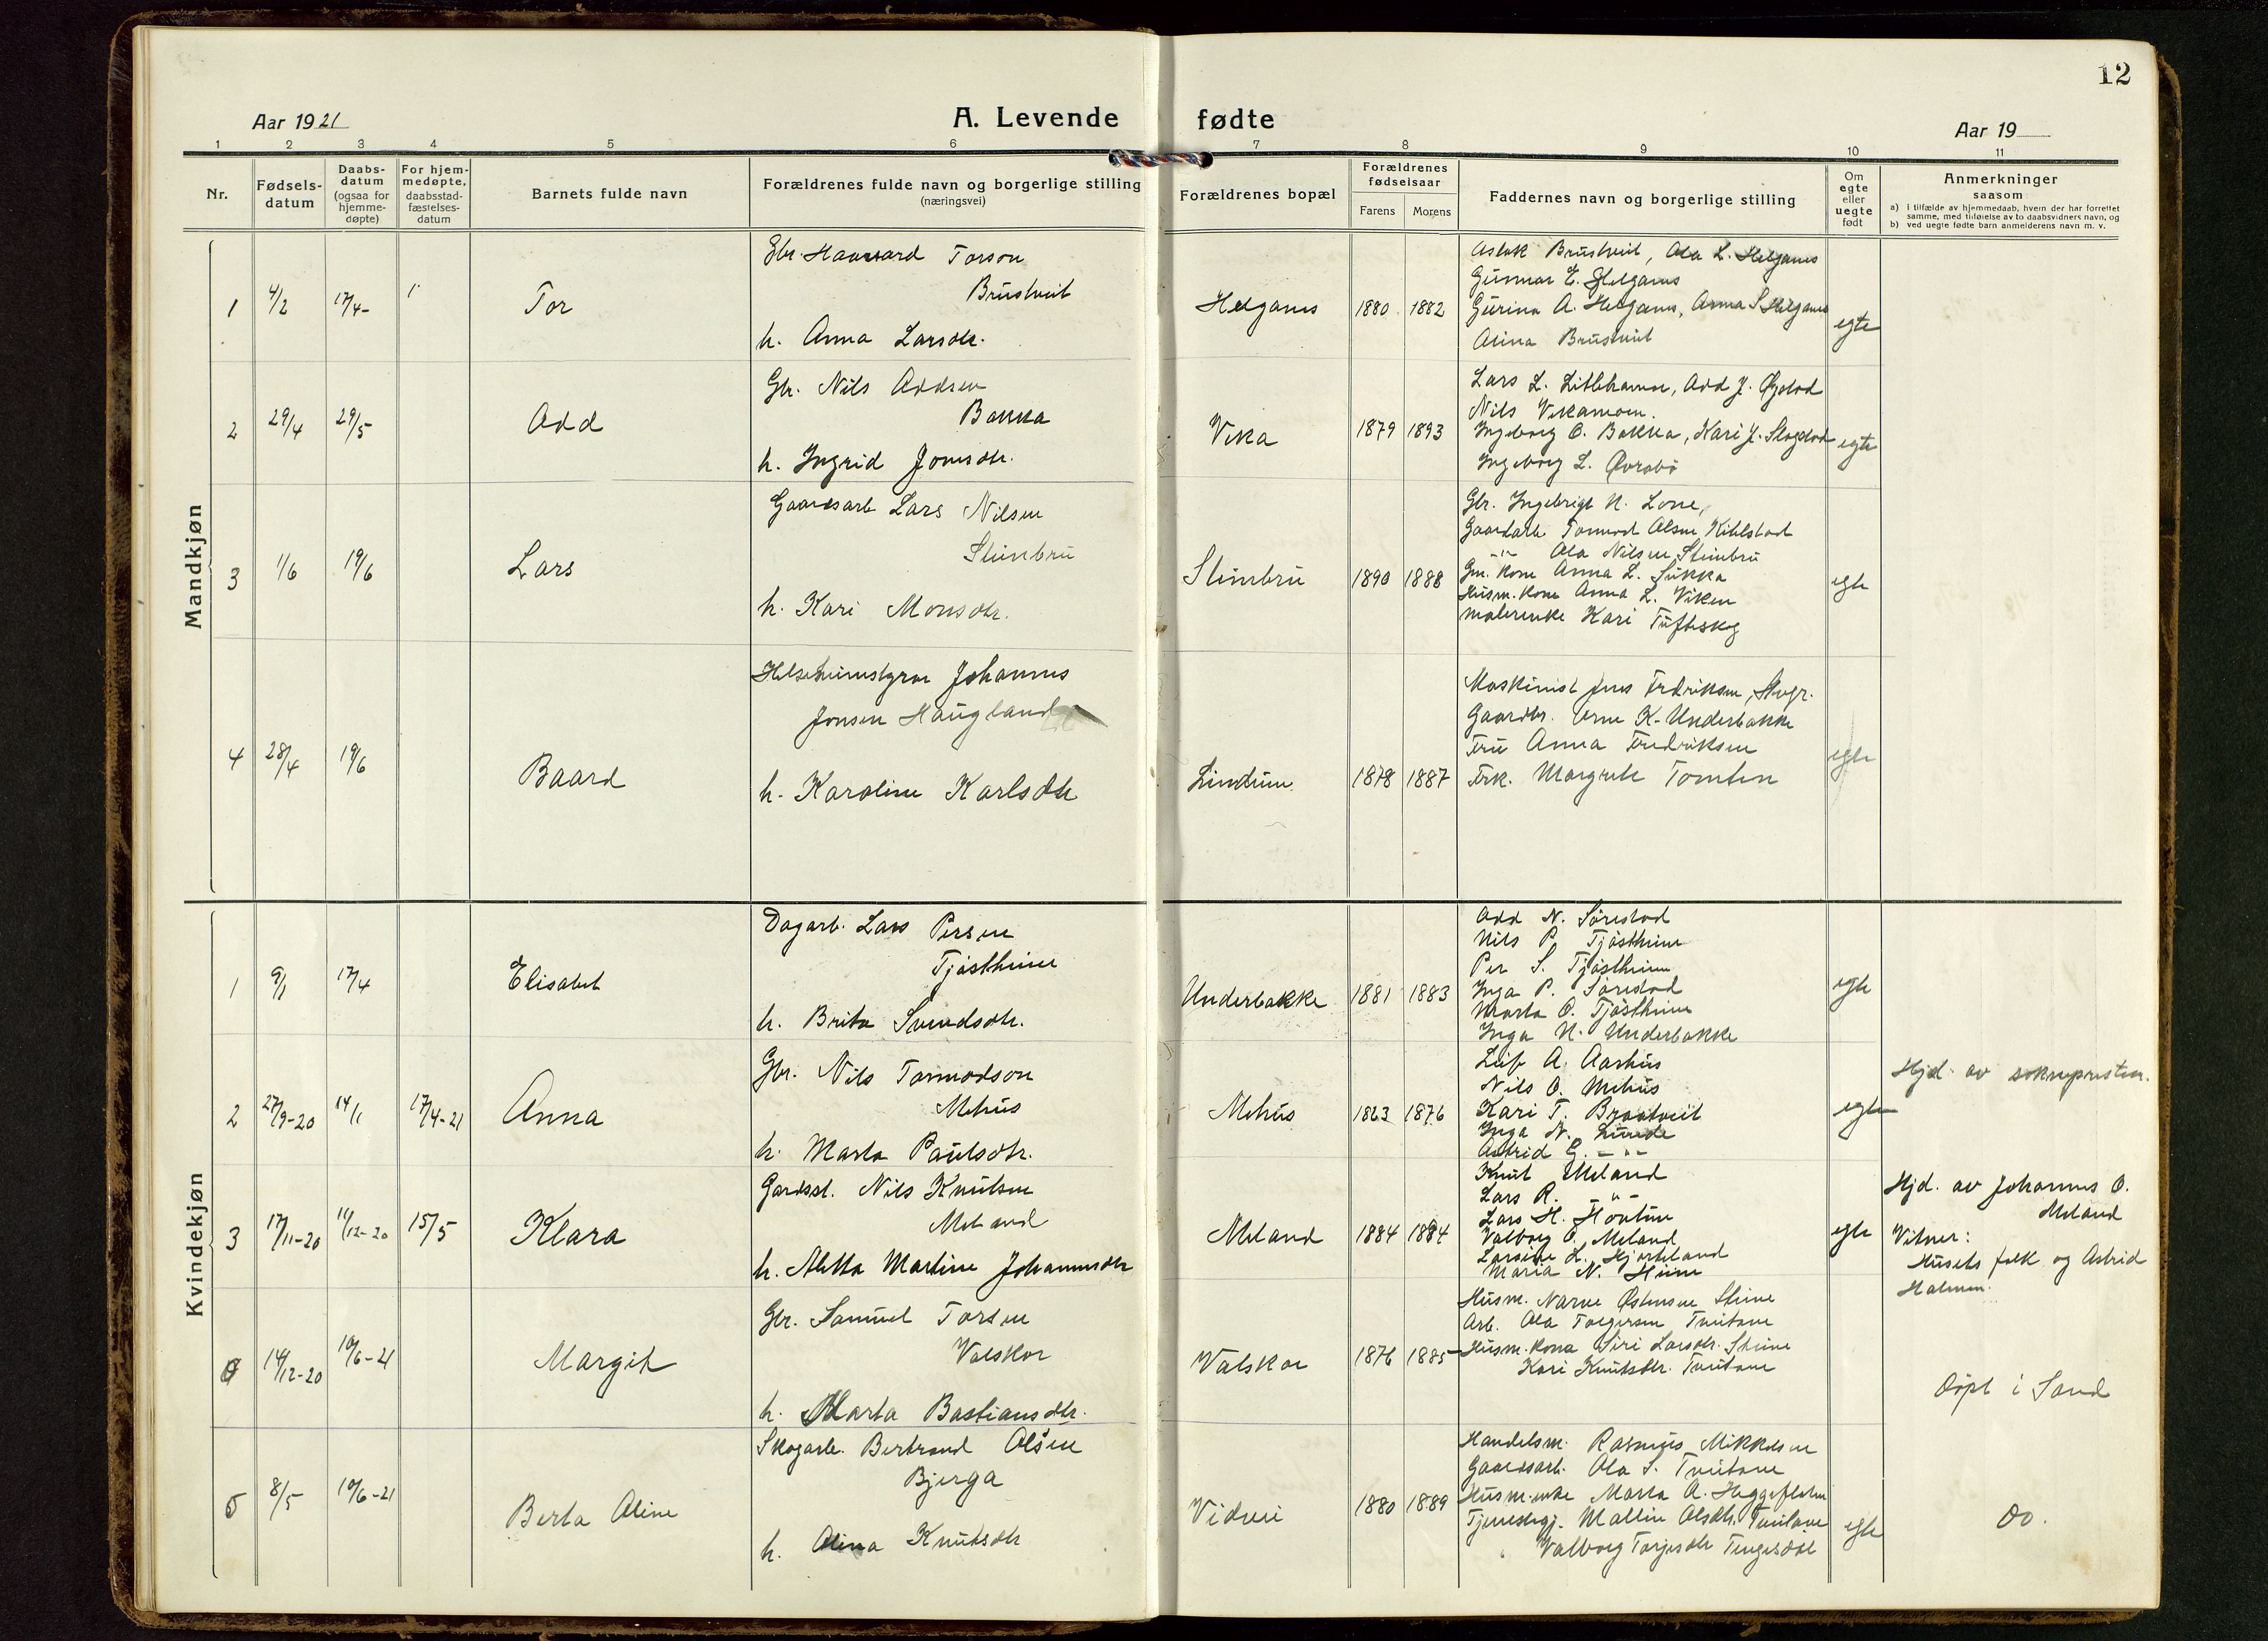 12
Aar 1921
A. Levende fødte
Aar 19
1 2 3 4 5 6 7 8 9 10 11
Nr.
Fødsels-
datum
Daabs-
datum
(ogsaa for
hjemme-
døpte)
For hjem-
medøpte,
daabsstad-
fæstelses-
datum
Barnets fulde navn
Forældrenes fulde navn og borgerlige stilling
(næringsvei)
Forældrenes bopæl
Forældrenes
fødselsaar
Farens Morens
Faddernes navn og borgerlige stilling
Om
egte
eller
uegte
født
Anmerkninger
saasom:
a) i tilfælde av hjemmedaab, hvem der har forrettet
samme, med tilføielse av to daabsvidners navn, og
b) ved uegte fødte barn anmelderens navn m. v.
Mandkjøn
1 4/2 17/4- Tor
Gbr. Haavard Torson
Brustveit
h. Anna Larsdtr.
Helganes 1880 1882
Aslak Brustveit, Ola L. Helganes
Gunnar E. Helganes
Gurina A. Helganes, Anna S. Helganes
Alina Brustveit
egte
2 29/4 29/5 Odd
Gbr. Nils Oddsen
Bakka
h. Ingrid Jonsdtr.
Vika 1879 1893
Lars L. Litlehamar, Odd J. Øystad
Nils Vikamoen.
Ingeborg O. Bakka, Kari J.
Ingeborg L. Øvrabö
egte
3 1/6 19/6 Lars
Gaardsarb. Lars Nilsen
Steinbru
h. Kari Monsdtr.
Steinbru 1890 1888
Gbr. Ingebrigt N. Lone,
Gaardarb. Tormod Olsen
-"- Ola Nilsen Steinbru
Gm. kone Anna L. Sukka
Husm. kone Anna L. Viken
Malerenke Kari Tufteskog
egte
4 28/4 19/6 Baard
Helseheimstyrar Johannes
Jonsen Haugland
h. Karoline Karlsdtr
Lindum 1878 1887
Maskinist Jens Fredriksen,
Gaardbr. Arne K. Underbakke
Fru Anna Fredriksen
Frk. Margrete Tomten
egte
Kvindekjøn
1 9/1 17/4 Elisabet
Dagarb. Lars Persen
Tjöstheim
h. Brita Svendsdtr.
Underbakke 1881 1883
Odd N. Sørestad
Nils P. Tjöstheim
Per S. Tjöstheim
Inga P. Sørestad
Marta O. Tjöstheim
Inga N. Underbakke
egte
2 27/9-20 14/1 17/4-21 Anna
Gbr. Nils Tormodson
Mehus
h. Marta Paulsdtr.
Mehus 1863 1876
Leif A. Aarhus
Nils O. Mehus
Kari T. Braatveit
Inga N. Lunde
Astrid G. -"-
egte
Hjd. av soknepresten.
3 17/11-20 11/12-20 15/5 Klara
Gardsst. Nils Knutsen
Meland
h. Aletta Martine Johannesdtr
Meland 1884 1884
Knut Meland
Lars R. -"-
Lars H. Hovtun
Valborg O. Meland
Larsine L. Hjorteland
Maria N. Heim
egte
Hjd. av Johannes O.
Meland
Vitner:
Husets folk og Astrid
Halmen.
4 14/12-20 10/6-21 Margit
Gbr. Samuel Torsen
Valskor
h. Marta Bastiansdtr.
Valskor 1876 1885
Husm. Narve Østensen Steine
Arb. Ola Torgersen Tveitane
Husm. kona Siri Larsdtr. Steine
Kari Knutsdtr. Tveitane
Döpt i Sand
5 8/5 10/6-21 Berta Oline
Skogarb. Bertrand Olsen
Bjerga
h. Olina Knutsdtr
Vidvei 1880 1889
Handelsm. Rasmus Mikkelsen
Gaardsarb. Ola S. Tveitane
Husm.enke Marta A. Heggeflaten
Tjenestegj. Malline Olsdtr. Tveitane
Valborg Torgesdtr Tengesdal
egte
Do.